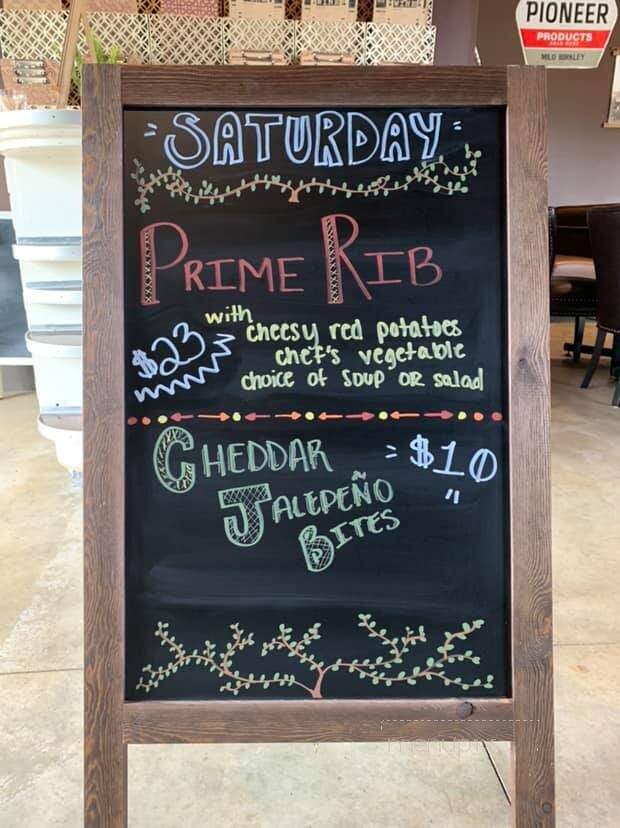 PIONEER
PRODUCTS
MILO BINKLEY
SATURDAY
PRIME RIB
with
$23
cheesy red potatoes
chef's vegetable
choice of soup OR salad
CHEDDAR
$10
JALEPEÑO
BITES